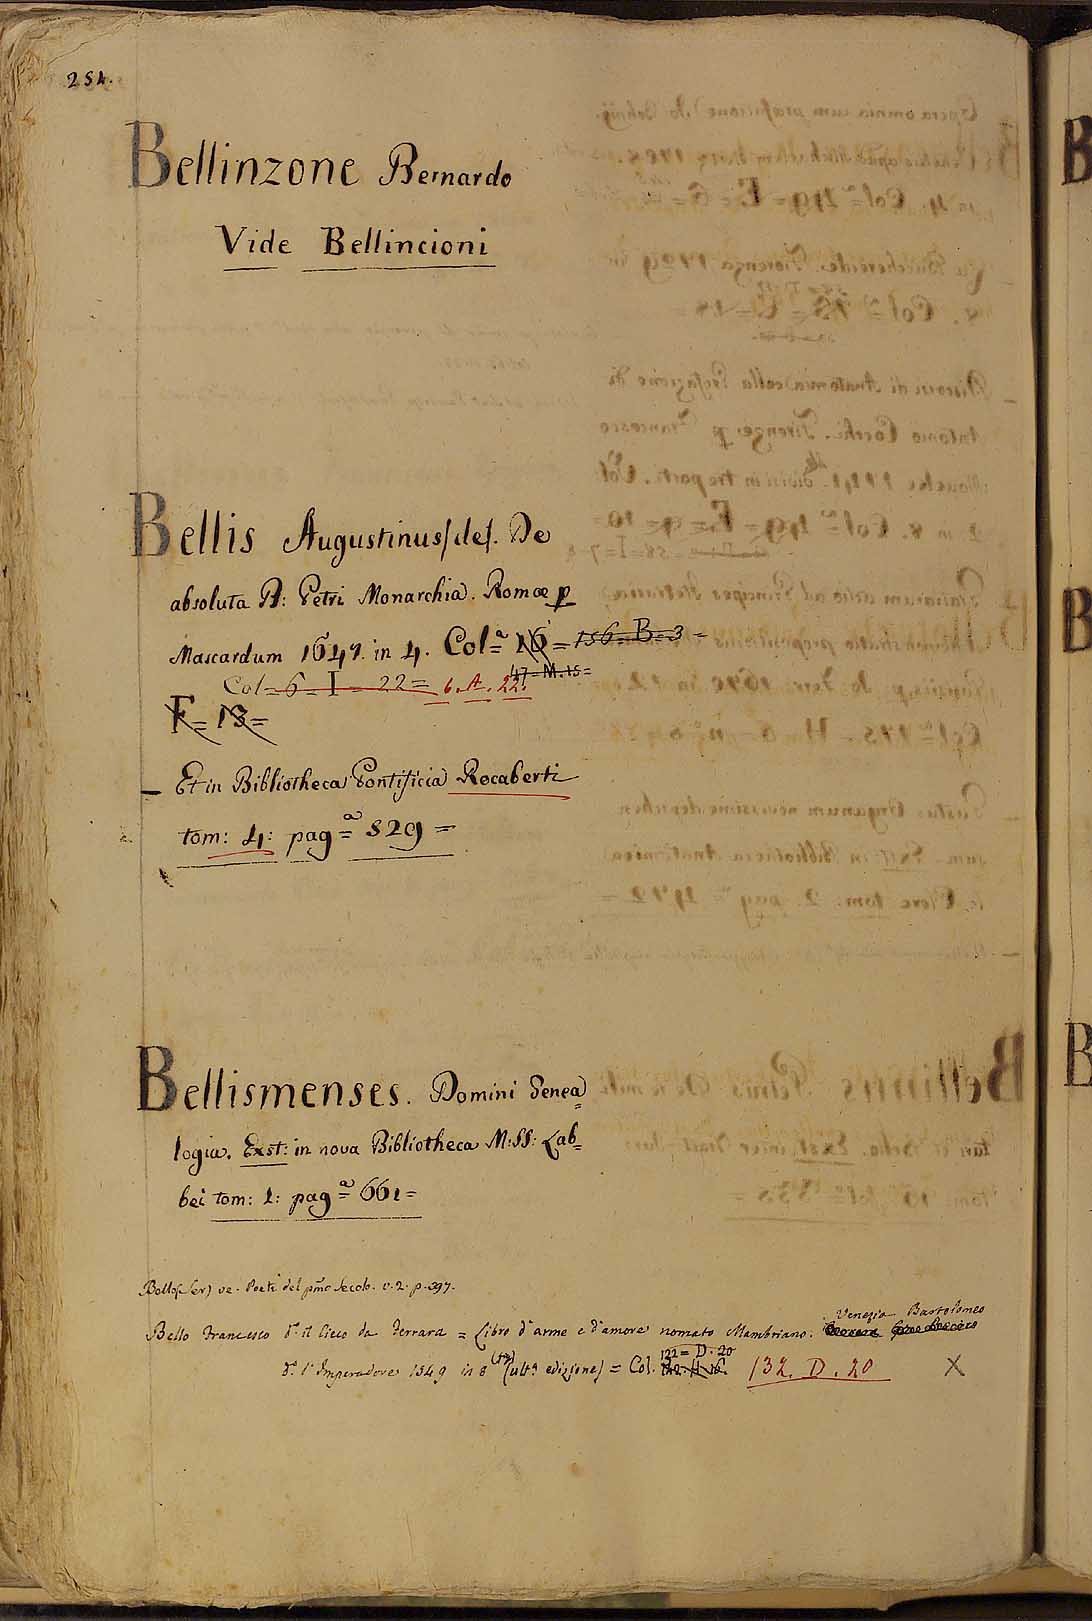 254.
Bellinzone Bernardo
Vide Bellincioni
Bellis Augustinus (de). De
absoluta D: Petri Monarchia. Romæ p
Mascardum 1649. in 4. Colª 16 = 156 = B = 3 =
47 = M. 15 =
Col = 6 = I = 22 = 6. A. 22.
F = 13 =
Et in Bibliotheca Pontificia Rocaberti
tom: 4: pagª = 829 =
Bellismenses. Domini Genea=
logia. Exst: in nova Bibliotheca M:SS: Lab=
bei tom: 1: pagª = 661 =
Bello (Ser) ve. Poeti del pmo Secolo. v. 2. p. 397.
Bello Francesco dº il Cieco da Ferrara = Libro d'arme e d'amore nomato Mambriano. Venezia Bartolomeo
dº l'Imperadore 1549 in 8 (ultª edizione) = Col. 122 = D. 20 132. D. 20 X